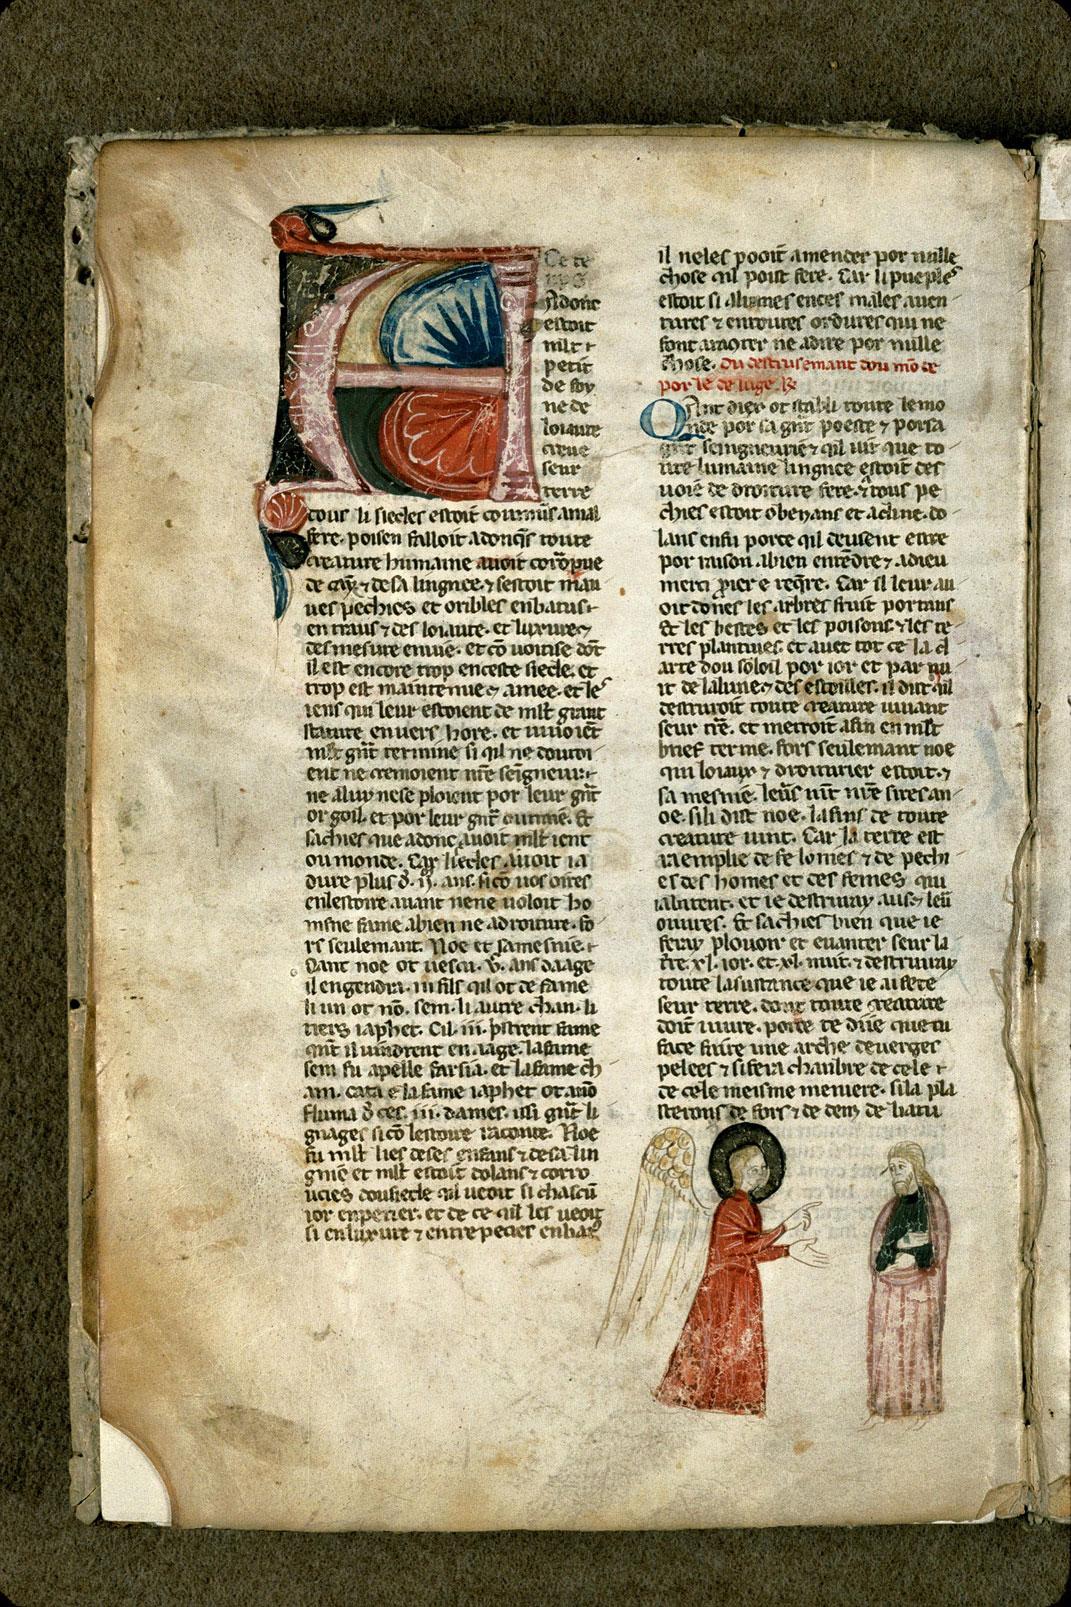 Ce te
nps
Adonc
estoit
mlt
petit
de foy
ne de
loiaute
creue
seur
terre
tous li siecles estoit tournus a mal
fere. poisen falloit adonqs toute
creature humaine auoit corōpue
de cay. & de sa lingnee. & sestoit mau
ues pechies et oribles enbatus
en traus & des loiaute. et luxure &
des mesure enuie. et cōuoitise dōt
il est encore trop en ceste siecle. et
trop est maintenue & amee. et les
iens qui leur estoient de mlt grant
stature enuers hore. et uiuoiēt
mlt grāt termine si qil ne douto
ent ne cremoient nrē seigneur
ne a luy ne se ploient por leur grāt
orgoil. et por leur grāt
sachies que adonc auoit mlt ient
ou monde. Car siecles auoit ia
dure plus d. ij. ans. si cō uos oires
en lestoire auant ne ne uoloit ho
ms ne fame a bien ne a droiture. fo
rs seulemant. Noe et sa mesnie.
Qant noe ot uescu. v. ans daage
il engendra. iii fils qil ot de fame
li un ot nō. sem. li autre chan. li
tiers iaphet. Cil. iii. pristrent fame
qnt il uindrent en aage. la fame
sem fu apelle farsia. et la fame ch
am. cata & la fame iaphet ot anō
fluuia d ces. iii. dames. issi grāt li
gnages si cō lestoire raconte. Noe
fu mlt lies de ses enfans & de sa lin
gniē et mlt estoit dolans & corro
ucies dou siecle qil ueoit si chascū
ior enpeirer. et de ce qil les ueoit
si en luxure & entrepecies en bar
il ne les pooit amender por nulle
chose qil poist fere. Car li pueples
estoit si alumes en ces males auen
tures & en toutes ordures qui ne
font a racōter ne a dire por nulle
chose. Du destruisemant dou mōde
por le deluge. R
Qant dieu ot stabli toute le mo
nde por sa grāt poeste & por sa
grāt seingneurie & qil uit que to
ute lumaine lingnee estoit des
uoiē de droiture fere. & tous pe
chies estoit obeyans et acline. do
lans en fu porce qil deusent estre
por raison. a bien entēdre & a dieu
merci prier e reqre. Car il leur au
oit dones les arbres fruit portans
Et les bestes et les poisons & les te
rres plantiues. et auec tot ce la cl
arte dou soloil por ior et par nu
it de la lune & des estoilles. il dist qil
destruiroit toute creature uiuant
seur trē. et metroit a fin en mlt
brief terme. fors seulemant noe
qui loiaux & droiturier estoit. &
sa mesnie. leus uīt nrē sires a n
oe. si li dist noe. la fins de toute
creature uint. Car la terre est
raemplie de felonies & de pechi
es des homes et des femes qui
i abitent. et ie destruiray aus & leu
ouures. Et sachies bien que ie
feray plouoir et euanter seur la
tre. xl. ior. et xl. nuit. & destruiray
toute la sustance que ie ai fete
seur terre. dont toute creature
doit uiure. porce te diie que tu
face faire une arche de uerges
pelees & si fera chanbre de cele
de cele meisme meniere. si la pla
sterons de fors & de denz de batu